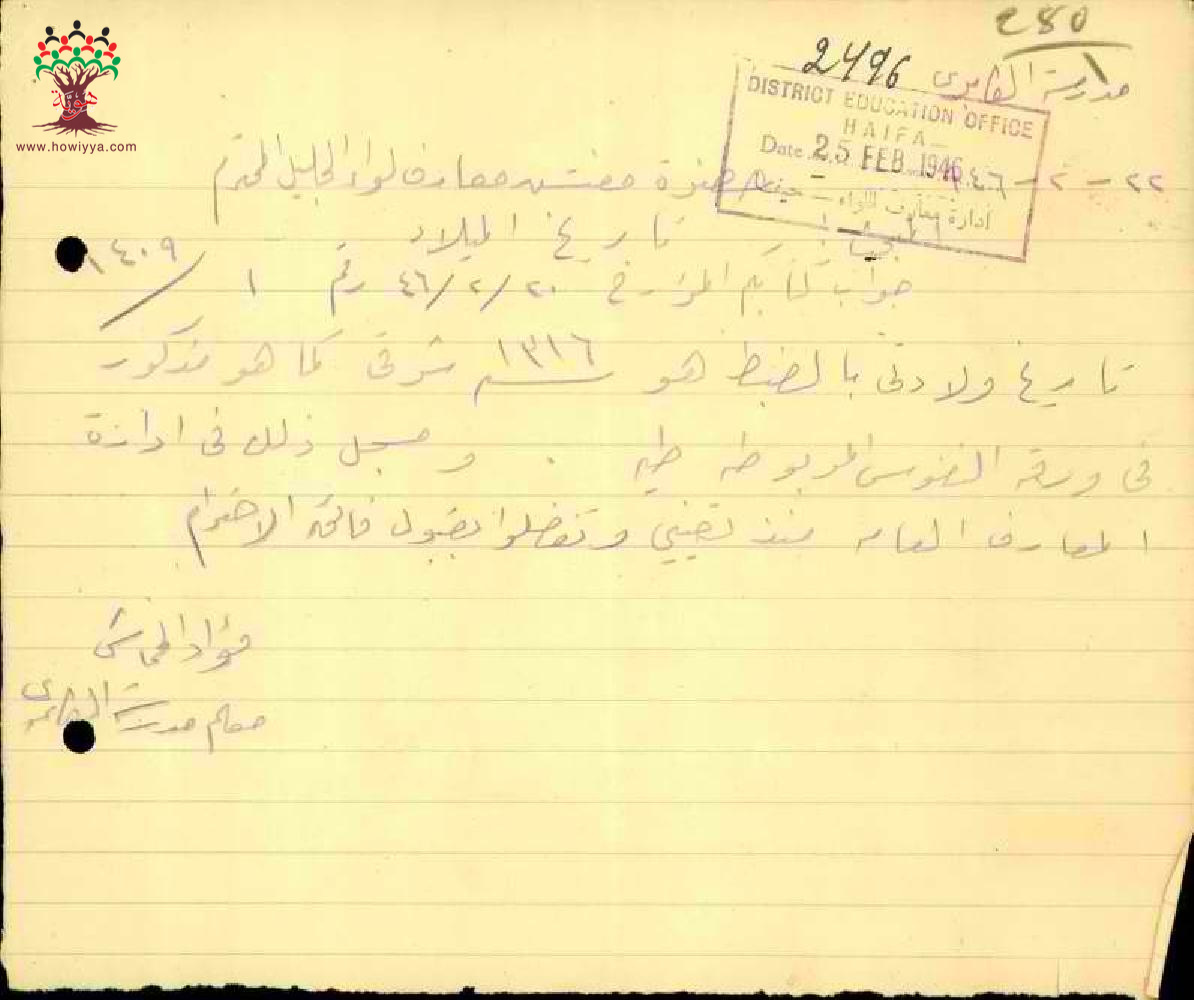 280
مدرسة
2496
DISTRICT EDUCATION OFFICE
HAIFA
Date 25 FEB 1946
ادارة معارف اللواء - حيفا
هوية
www.howiyya.com
٢٢ - ٢ - ٤٦
حضرة مفتش معارف لواء الجليل المحترم
تاريخ الميلاد
جواب كتابكم المؤرخ ٢٠/٢/٤٦ رقم ١/١٤٠٩
تاريخ ولادتي بالضبط هو سنة ١٣١٦ شرقي كما هو مذكور
في ورقة النفوس المربوطة طيه . ومسجل ذلك في ادارة
المعارف العامة منذ تعييني وتفضلوا بقبول فائق الاحترام
فؤاد
معلم مدرسة